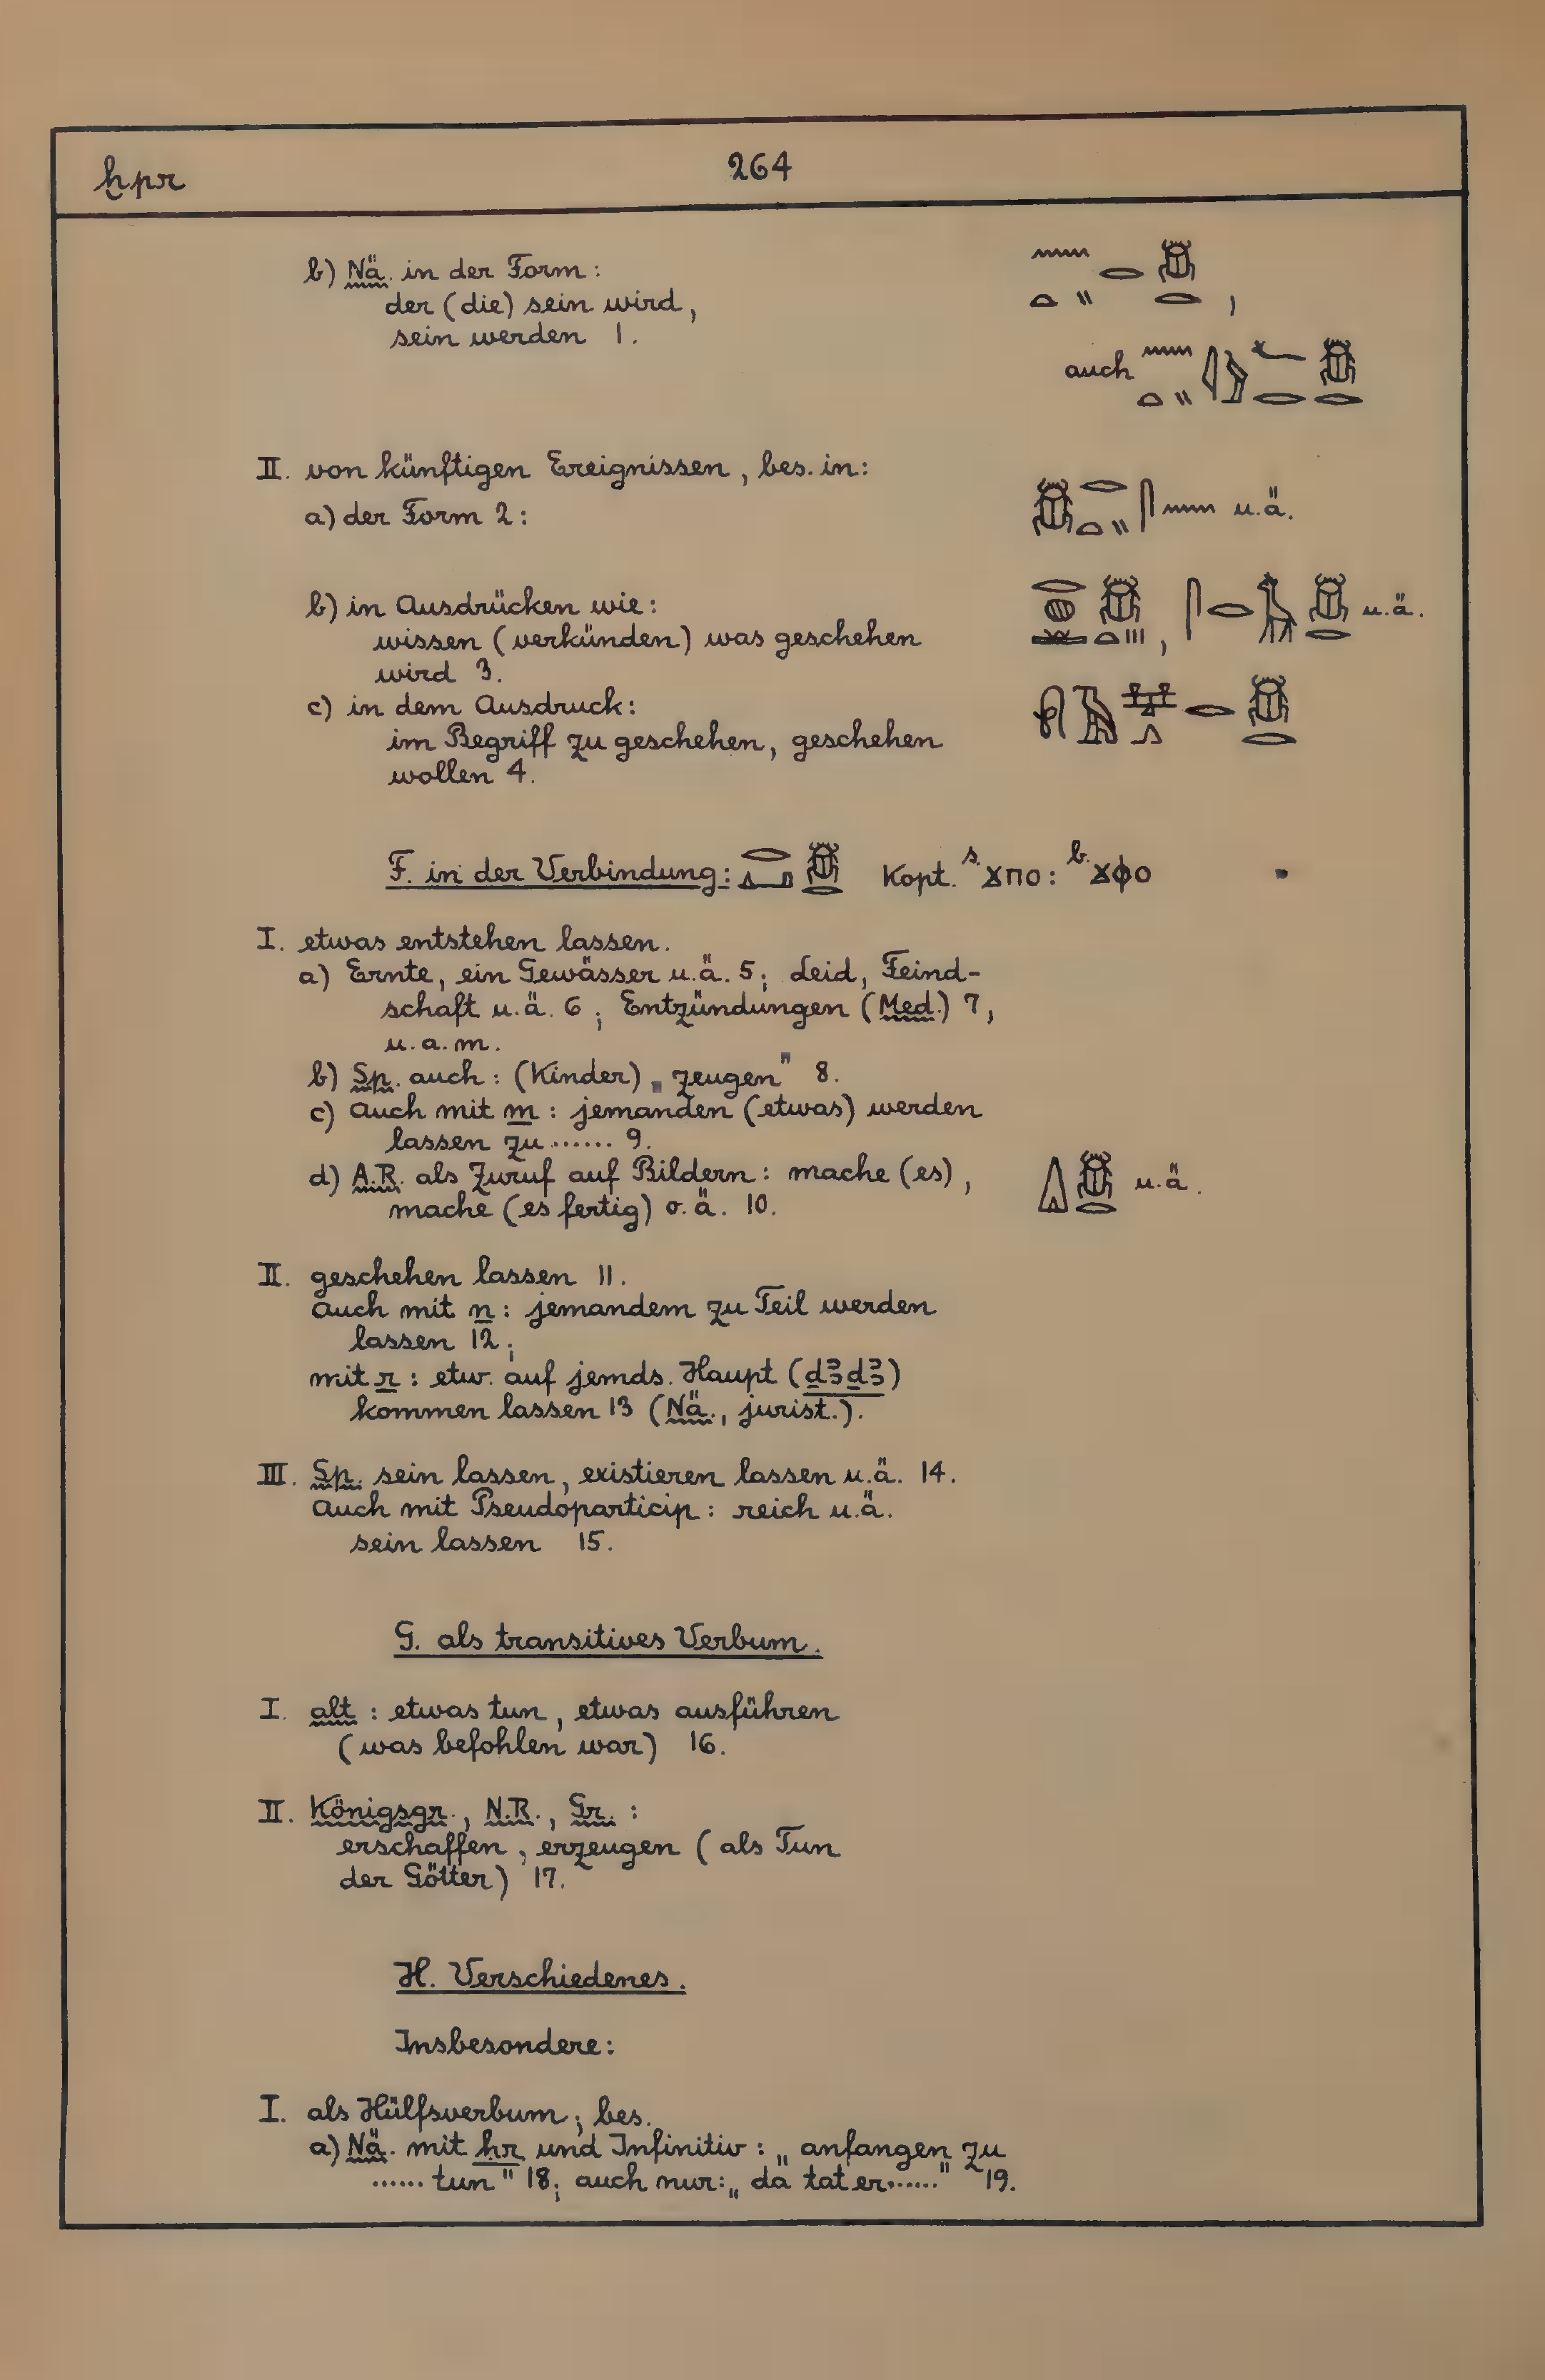 ḫpr
264
b) Nä. in der Form:
der (die) sein wird,
sein werden 1.
auch
II. von künftigen Ereignissen, bes. in:
a) der Form 2:
u.ä.
b) in Ausdrücken wie:
wissen (verkünden) was geschehen
wird 3.
u.ä.
c) in dem Ausdruck:
im Begriff zu geschehen, geschehen
wollen 4.
F. in der Verbindung: Kopt. s. ϫⲡⲟ: b. ϫⲫⲟ
I. etwas entstehen lassen.
a) Ernte, ein Gewässer u.ä. 5; Leid, Feind-
schaft u.ä. 6; Entzündungen (Med.) 7,
u.a.m.
b) Sp. auch: (Kinder) „zeugen" 8.
c) Auch mit m: jemanden (etwas) werden
lassen zu ...... 9.
d) A.R. als Zuruf auf Bildern: mache (es),
mache (es fertig) o.ä. 10.
u.ä.
II. geschehen lassen 11.
Auch mit n: jemandem zu Teil werden
lassen 12;
mit r: etw. auf jemds. Haupt (ḏꜣḏꜣ)
kommen lassen 13 (Nä., jurist.).
III. Sp. sein lassen, existieren lassen u.ä. 14.
Auch mit Pseudoparticip: reich u.ä.
sein lassen 15.
G. als transitives Verbum.
I. alt: etwas tun, etwas ausführen
(was befohlen war) 16.
II. Königsgr., N.R., Gr.:
erschaffen, erzeugen (als Tun
der Götter) 17.
H. Verschiedenes.
Insbesondere:
I. als Hülfsverbum; bes.
a) Nä. mit ḥr und Infinitiv: „anfangen zu
...... tun" 18; auch nur: „da tat er ......" 19.